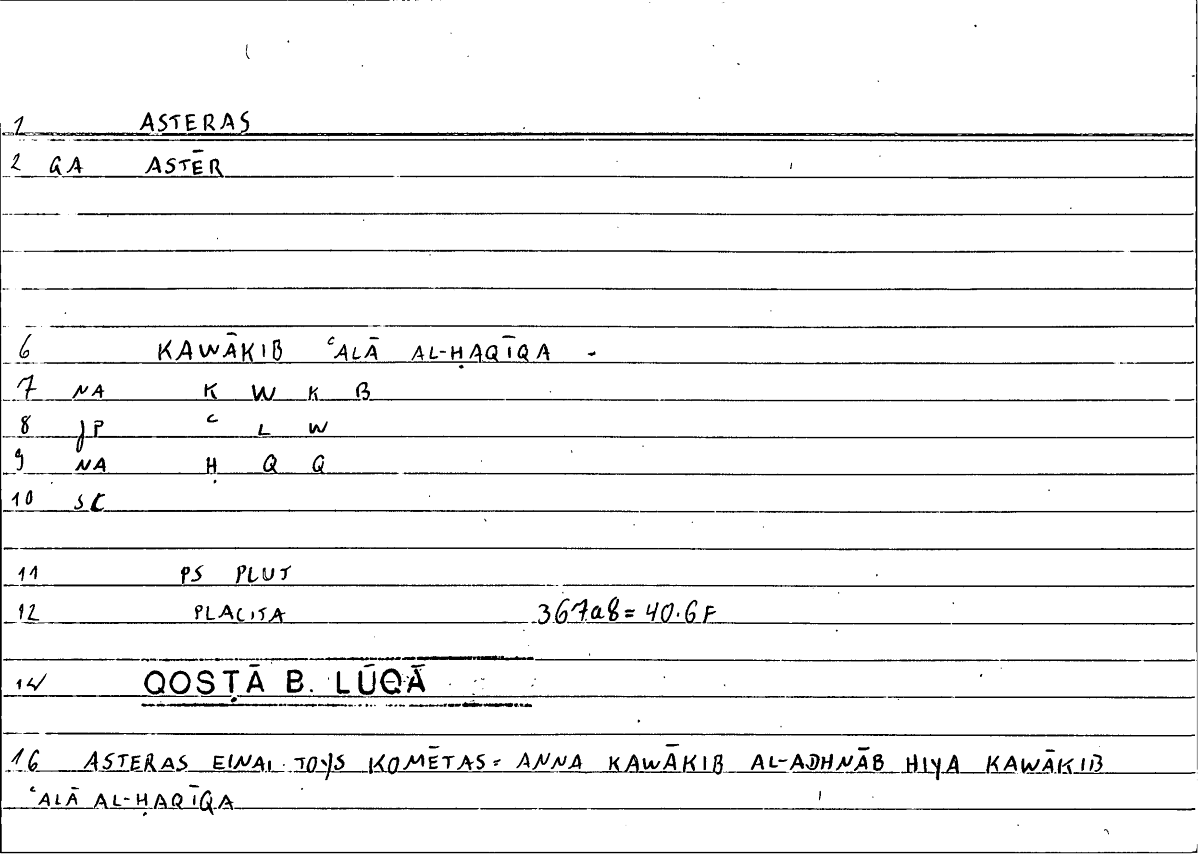 1 ASTERAS
2 GA ASTĒR
6 KAWĀKIB ʿALĀ AL-ḤAQĪQA -
7 NA K W K B
8 JP ʿ L W
9 NA Ḥ Q Q
10 SC
11 PS PLUT
12 PLACITA 367a8 = 40.6F
14 QOSṬĀ B. LŪQĀ
16 ASTERAS EINAI TOYS KOMĒTAS = ANNA KAWĀKIB AL-ADHNĀB HIYA KAWĀKIB
ʿALĀ AL-ḤAQĪQA